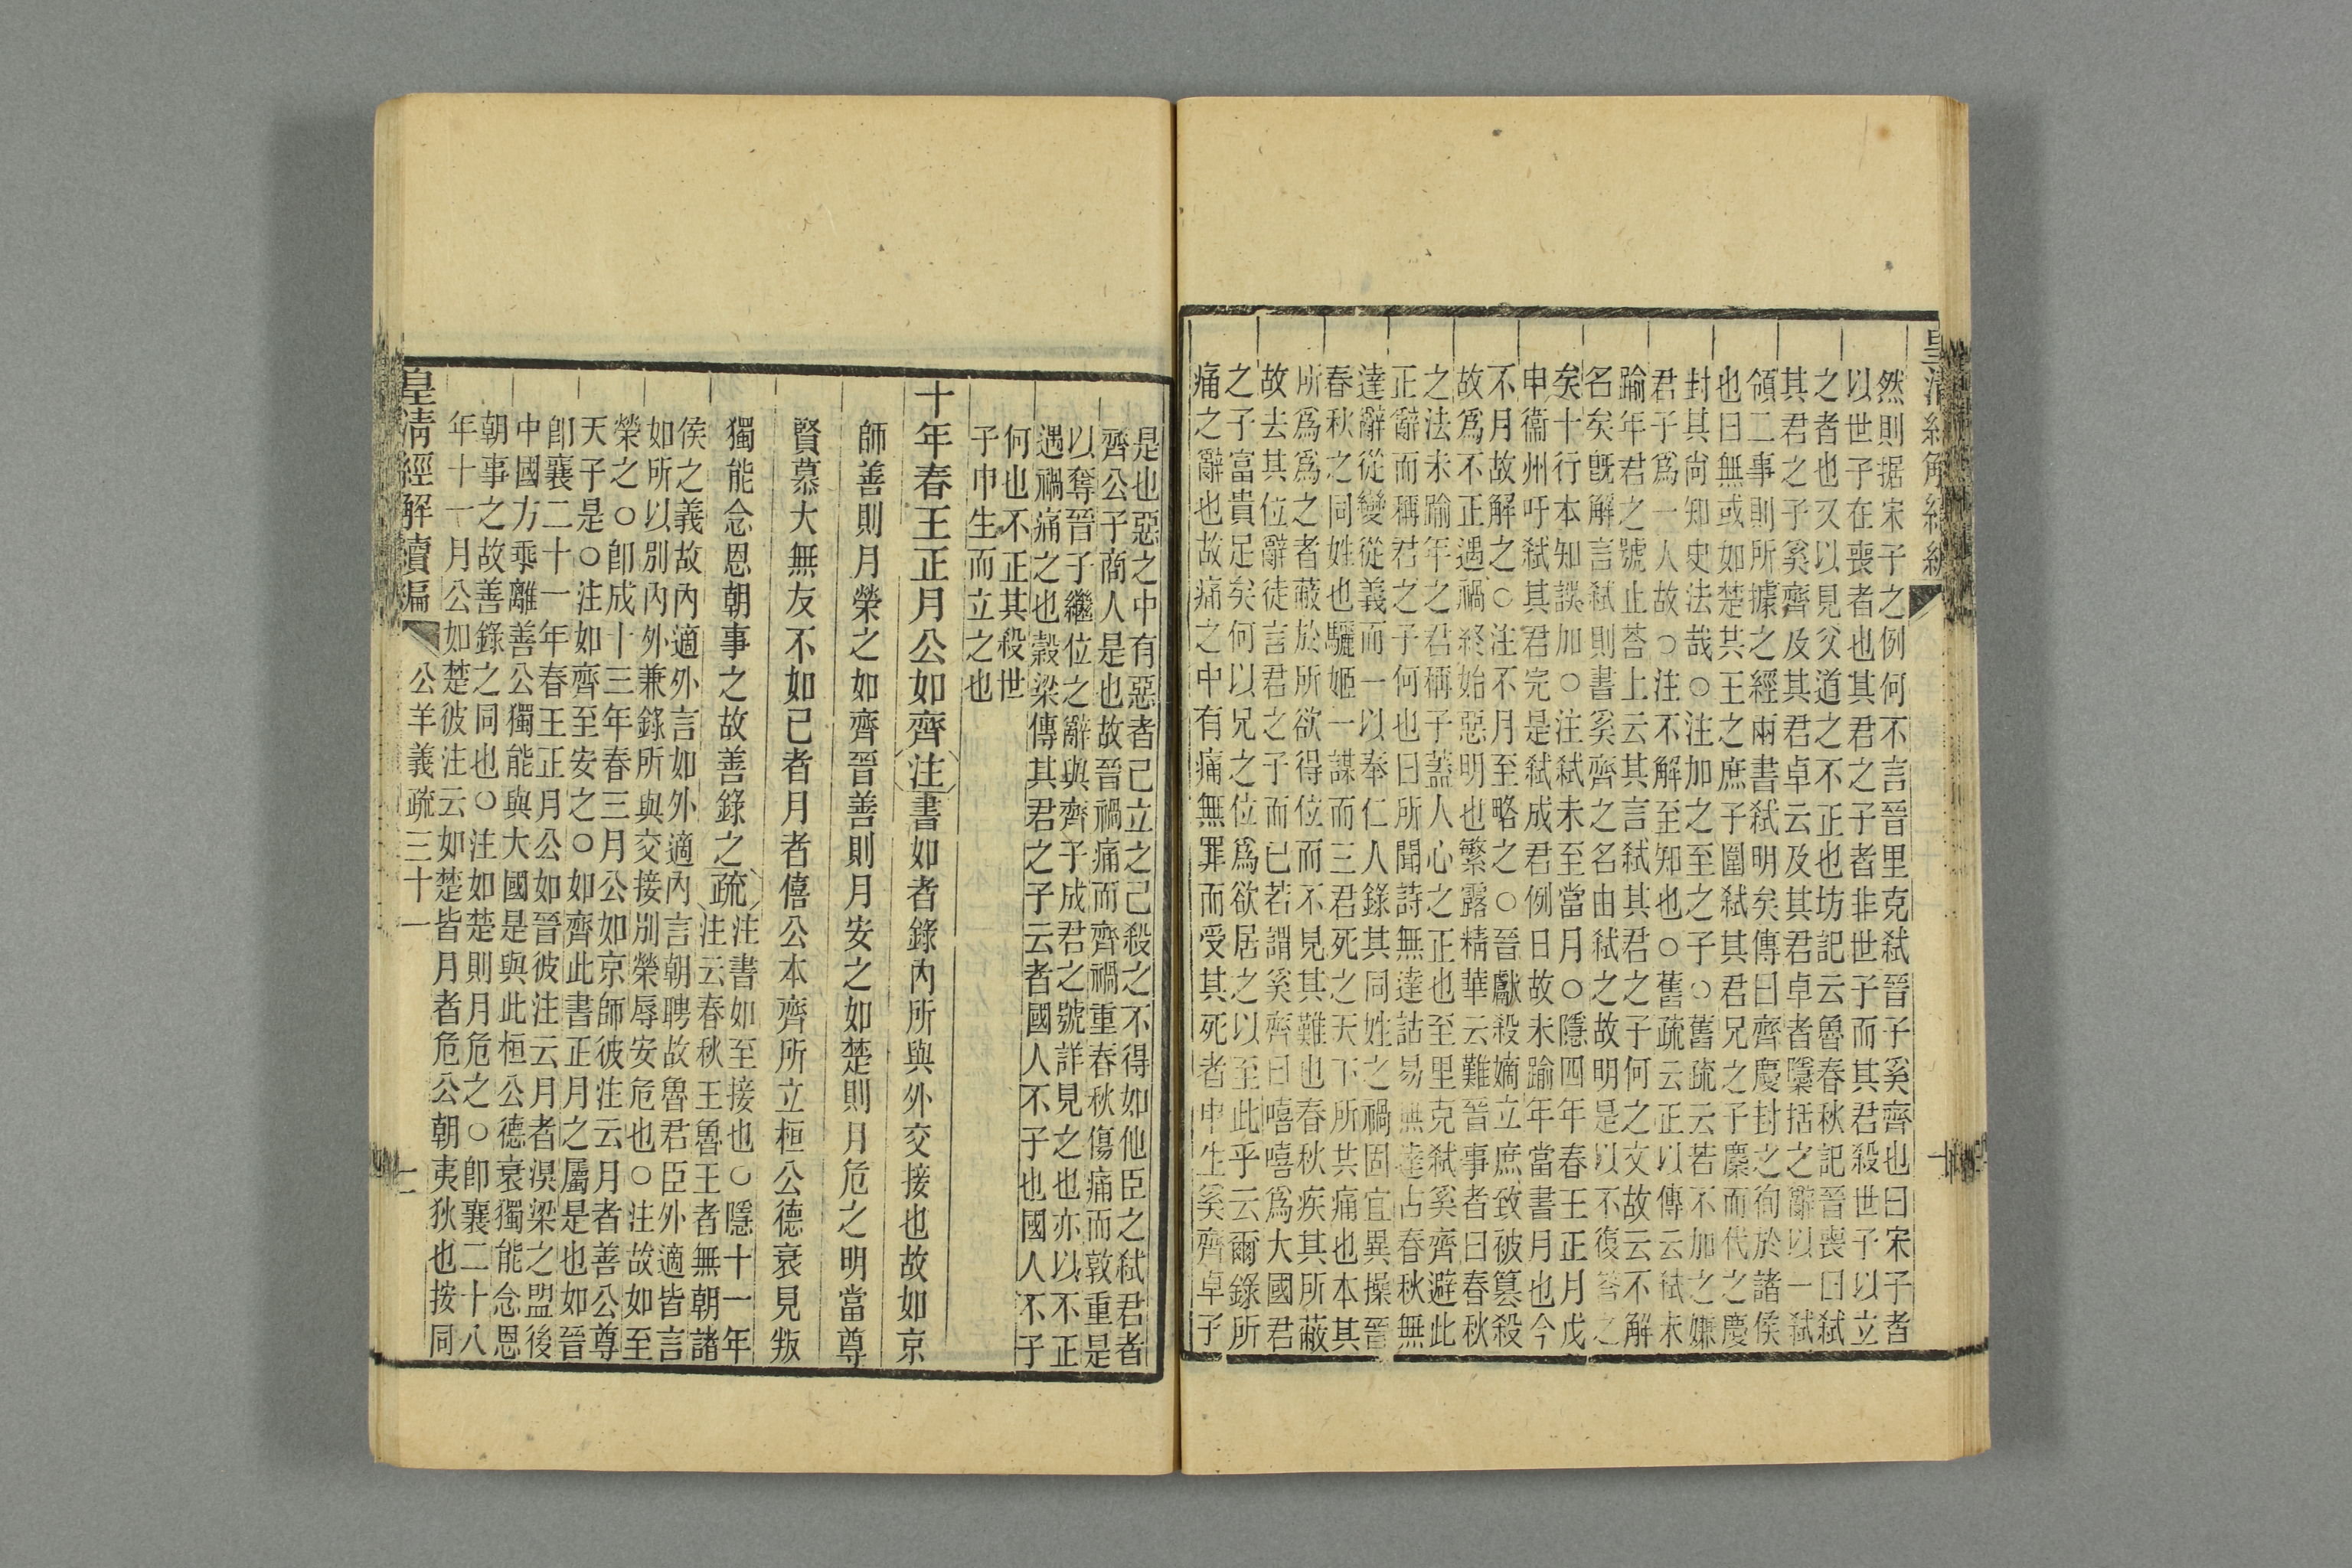 皇清經解續編
然則据宋子之例何不言晉里克弒晉子奚齊也曰宋子者
以世子在喪者也其君之子者非世子而其君殺世子以立
之者也又以見父道之不正也坊記云魯春秋記晉喪曰弒
其君之子奚齊及其君卓云及其君卓者隱括之辭以一弒
領二事則所據之經兩書弒明矣傳曰齊慶封之徇於諸侯
也曰無或如楚共王之庶子圍弒其君兄之子麇而代之慶
封其尙知史法哉○注加之至之子○舊疏云若不加之嫌
君子爲一人故○注不解至知也○舊疏云正以傳云弒未
踰年君之號止荅上云其言弒其君之子何之文故云不解
名矣旣解言弒則書奚齊之名由弒之故明是以不復荅之
矣十行本知誤加○注弒未至當月○隱四年春王正月戊
申衞州吁弒其君完是弒成君例日故未踰年當書月也今
不月故解之○注不月至略之○晉獻殺嫡立庶致被篡殺
故爲不正遇禍終始惡明也繁露精華云難晉事者曰春秋
之法未踰年之君稱子蓋人心之正也至里克弒奚齊避此
正辭而稱君之子何也曰所聞詩無達詁易無達占春秋無
達辭從變從義而一以奉仁人錄其同姓之禍固宜異操晉
春秋之同姓也驪姬一謀而三君死之天下所共痛也本其
所爲爲之者蔽於所欲得位而不見其難也春秋疾其所蔽
故去其位辭徒言君之子而已若謂奚齊曰嘻嘻爲大國君
之子富貴足矣何以兄之位爲欲居之以至此乎云爾錄所
痛之辭也故痛之中有痛無罪而受其死者申生奚齊卓子
是也惡之中有惡者己立之己殺之不得如他臣之弒君者
齊公子商人是也故晉禍痛而齊禍重春秋傷痛而敦重是
以奪晉子繼位之辭與齊子成君之號詳見之也亦以不正
遇禍痛之也穀梁傳其君之子云者國人不子也國人不子
何也不正其殺世
子申生而立之也
十年春王正月公如齊注書如者錄內所與外交接也故如京
師善則月榮之如齊晉善則月安之如楚則月危之明當尊
賢慕大無友不如己者月者僖公本齊所立桓公德衰見叛
獨能念恩朝事之故善錄之疏注書如至接也○隱十一年
注云春秋王魯王者無朝諸
侯之義故內適外言如外適內言朝聘故魯君臣外適皆言
如所以別內外兼錄所與交接別榮辱安危也○注故如至
榮之○卽成十三年春三月公如京師彼注云月者善公尊
天子是○注如齊至安之○如齊此書正月之屬是也如晉
卽襄二十一年春王正月公如晉彼注云月者溴梁之盟後
中國方乖離善公獨能與大國是與此桓公德衰獨能念恩
朝事之故善錄之同也○注如楚則月危之○卽襄二十八
年十一月公如楚彼注云如楚皆月者危公朝夷狄也按同
皇淸經解續編 公羊義疏三十一